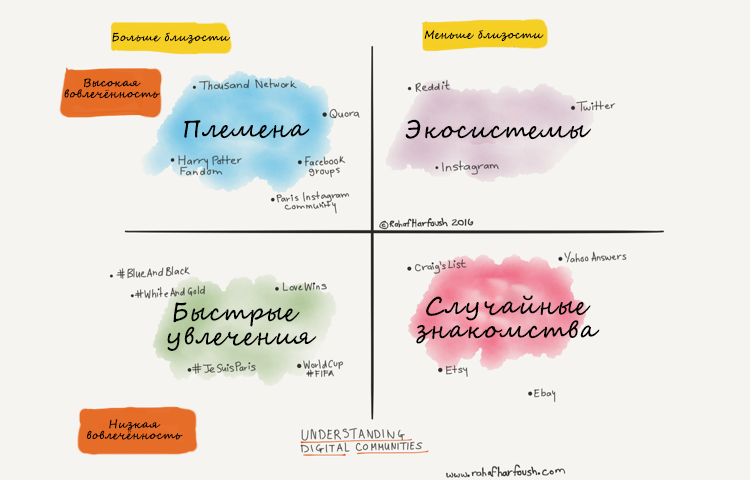 Больше близости
Меньше близости
Высокая
вовлечённость
• Thousand Network
• Quora
Племена
• Harry Potter
Fandom
• Facebook
groups
• Paris Instagram
community
• Reddit
• Twitter
Экосистемы
• Instagram
©RahafHarfoush 2016
• #BlueAndBlack
• #WhiteAndGold
• LoveWins
Быстрые
увлечения
• #JeSuisParis
• WorldCup
#FIFA
• Craig's List
• Yahoo Answers
Случайные
знакомства
• Etsy
• Ebay
Низкая
вовлечённость
UNDERSTANDING
DIGITAL COMMUNITIES
www.rahafharfoush.com